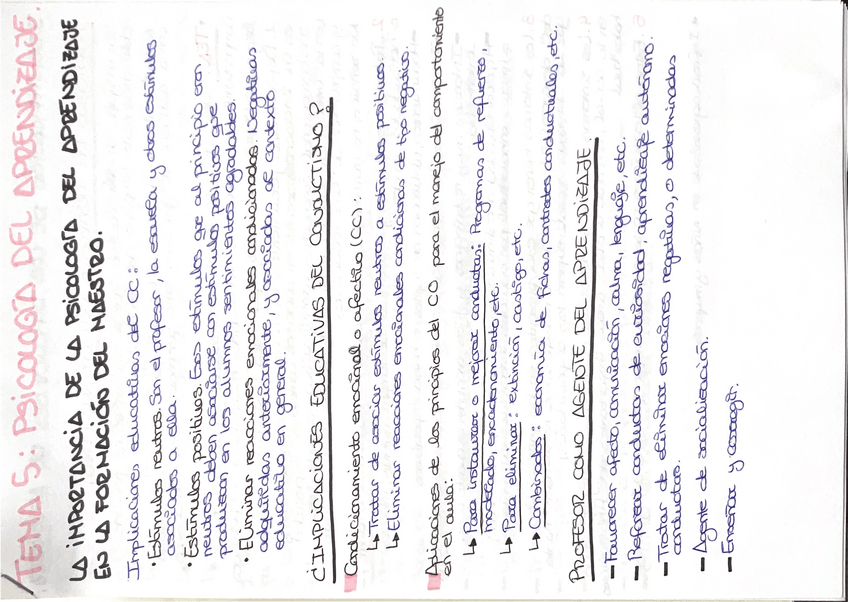 TEMA 5: PSICOLOGÍA DEL APRENDIZAJE.
LA IMPORTANCIA DE LA PSICOLOGÍA DEL APRENDIZAJE
EN LA FORMACIÓN DEL MAESTRO.
Implicaciones educativas del CC:
· Estímulos neutros. Son el profesor, la escuela y otros estímulos
asociados a ella.
· Estímulos positivos. Esos estímulos que al principio eran
neutros deben asociarse con estímulos positivos que
produzcan en los alumnos sentimientos agradables.
· Eliminar reacciones emocionales condicionadas. Negativas
adquiridas anteriormente, y asociadas al contexto
educativo en general.
¿IMPLICACIONES EDUCATIVAS DEL CONDUCTISMO?
Condicionamiento emocional o afectivo (CC):
↳ Tratar de asociar estímulos neutros a estímulos positivos.
↳ Eliminar reacciones emocionales condicionas de tipo negativo.
Aplicaciones de los principios del CO para el manejo del comportamiento
en el aula:
↳ Para instaurar o mejorar conductas: Programas de refuerzo,
moldeado, encadenamiento, etc.
↳ Para eliminar: extinción, castigo, etc.
↳ Combinados: economía de fichas, contratos conductuales, etc.
PROFESOR COMO AGENTE DEL APRENDIZAJE.
- Favorecer afecto, comunicación, calma, lenguaje, etc.
- Reforzar conductas de curiosidad, aprendizaje autónomo.
- Tratar de eliminar emociones negativas, o determinadas
conductas.
- Agente de socialización.
- Enseñar y corregir.